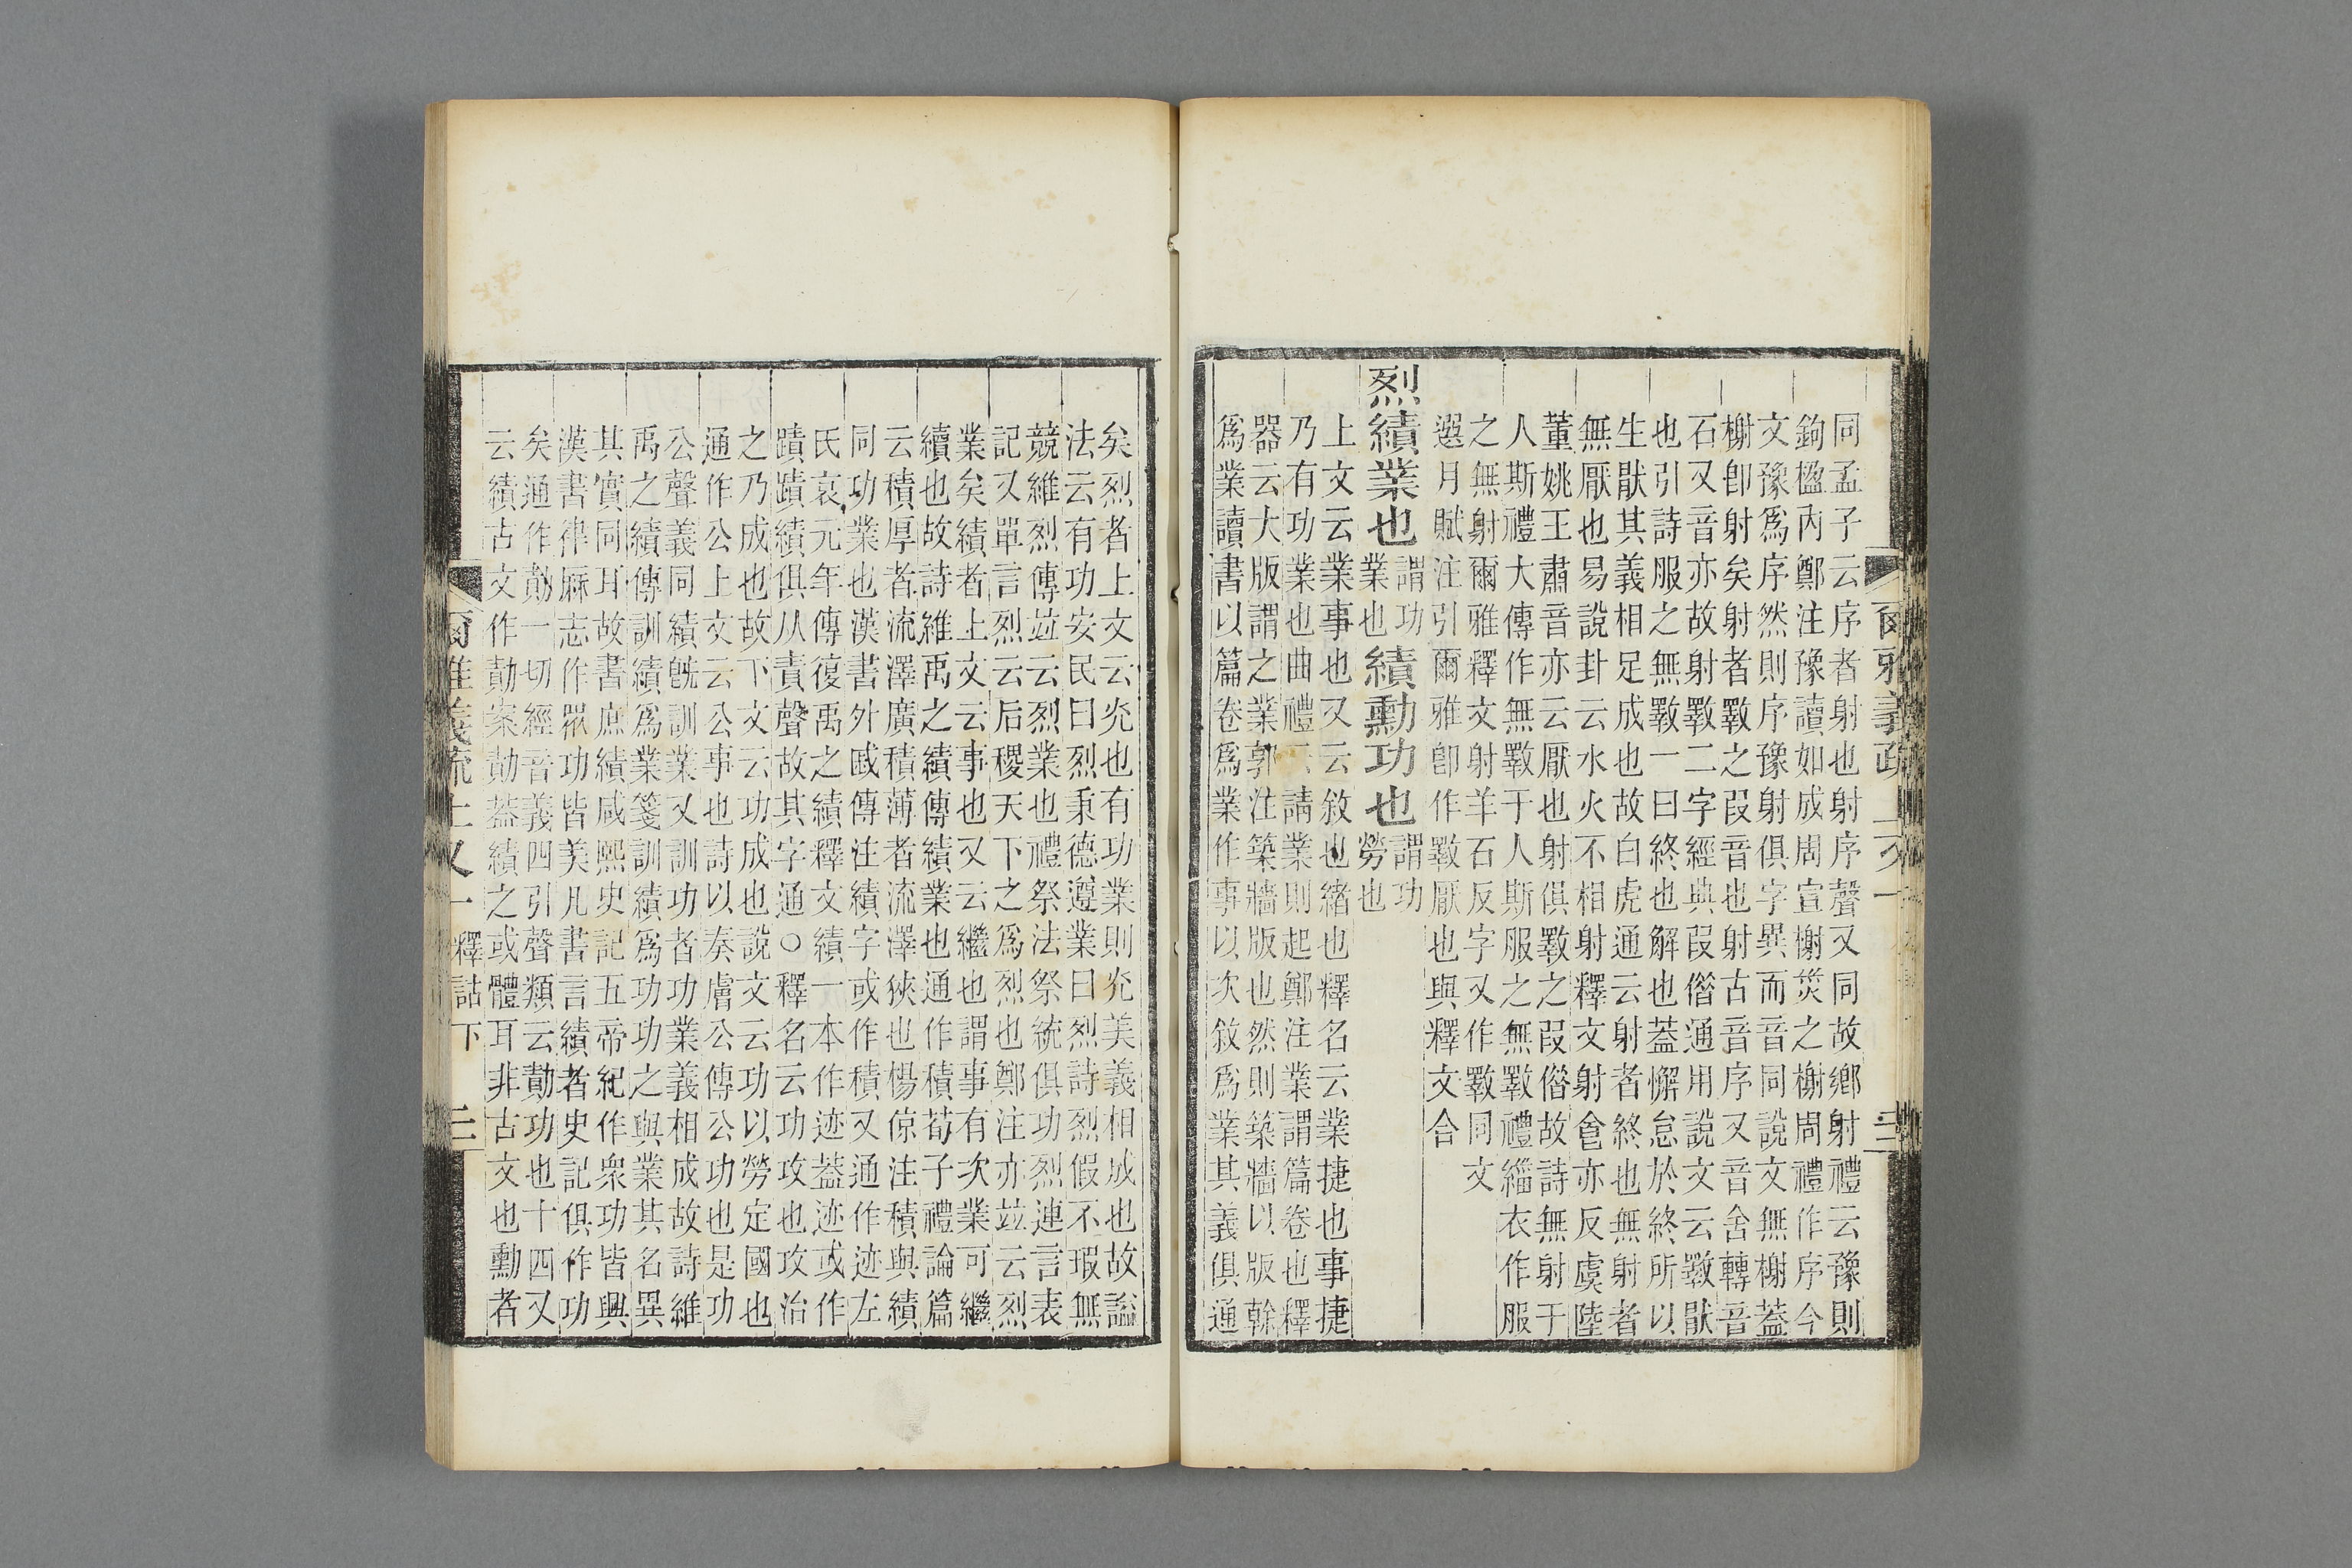 同孟子云序者射也射序聲又同故鄉射禮云豫則
鉤楹內鄭注豫讀如成周宣榭災之榭周禮作序今
文豫爲序然則序豫射俱字異而音同說文無榭蓋
榭卽射矣射者斁之叚音也射古音序又音舍轉音
石又音亦故射斁二字經典叚僭通用說文云斁猒
也引詩服之無斁一曰終也解也蓋懈怠於終所以
生猒其義相足成也故白虎通云射者終也無射者
無厭也易說卦云水火不相射釋文射㑹亦反虞陸
董姚王肅音亦云厭也射俱斁之叚僭故詩無射于
人斯禮大傳作無斁于人斯服之無斁禮緇衣作服
之無射爾雅釋文射羊石反字又作斁同文
選月賦注引爾雅卽作斁厭也與釋文合
烈績業也
謂功
業也
績勳功也
謂功
勞也
上文云業事也又云敘也緒也釋名云業捷也事捷
乃有功業也曲禮云請業則起鄭注業謂篇卷也釋
器云大版謂之業郭注築牆版也然則築牆以版榦
爲業讀書以篇卷爲業作事以次敘爲業其義俱通
爾雅義疏 上又一 三
矣烈者上文云灮也有功業則灮美義相成也故謚
法云有功安民曰烈秉德遵業曰烈詩烈假不瑕無
競維烈傳竝云烈業也禮祭法祭統俱功烈連言表
記又單言烈云后稷天下之爲烈也鄭注亦竝云烈
業矣績者上文云事也又云繼也謂事有次業可繼
續也故詩維禹之績傳績業也通作積荀子禮論篇
云積厚者流澤廣積薄者流澤狹也楊倞注積與績
同功業也漢書外戚傳注績字或作積又通作迹左
氏哀元年傳復禹之績釋文績一本作迹蓋迹或作
蹟蹟績俱从責聲故其字通○釋名云功攻也攻治
之乃成也故下文云功成也說文云功以勞定國也
通作公上文云公事也詩以奏膚公傳公功也是功
公聲義同績旣訓業又訓功者功業義相成故詩維
禹之績傳訓績爲業箋訓績爲功功之與業其名異
其實同耳故書庶績咸熙史記五帝紀作衆功皆興
漢書律厤志作眾功皆美凡書言績者史記俱作功
矣通作勣一切經音義四引聲類云勣功也十四又
云績古文作勣案勣蓋績之或體耳非古文也勳者
爾雅義疏 上又一 釋詁下 三